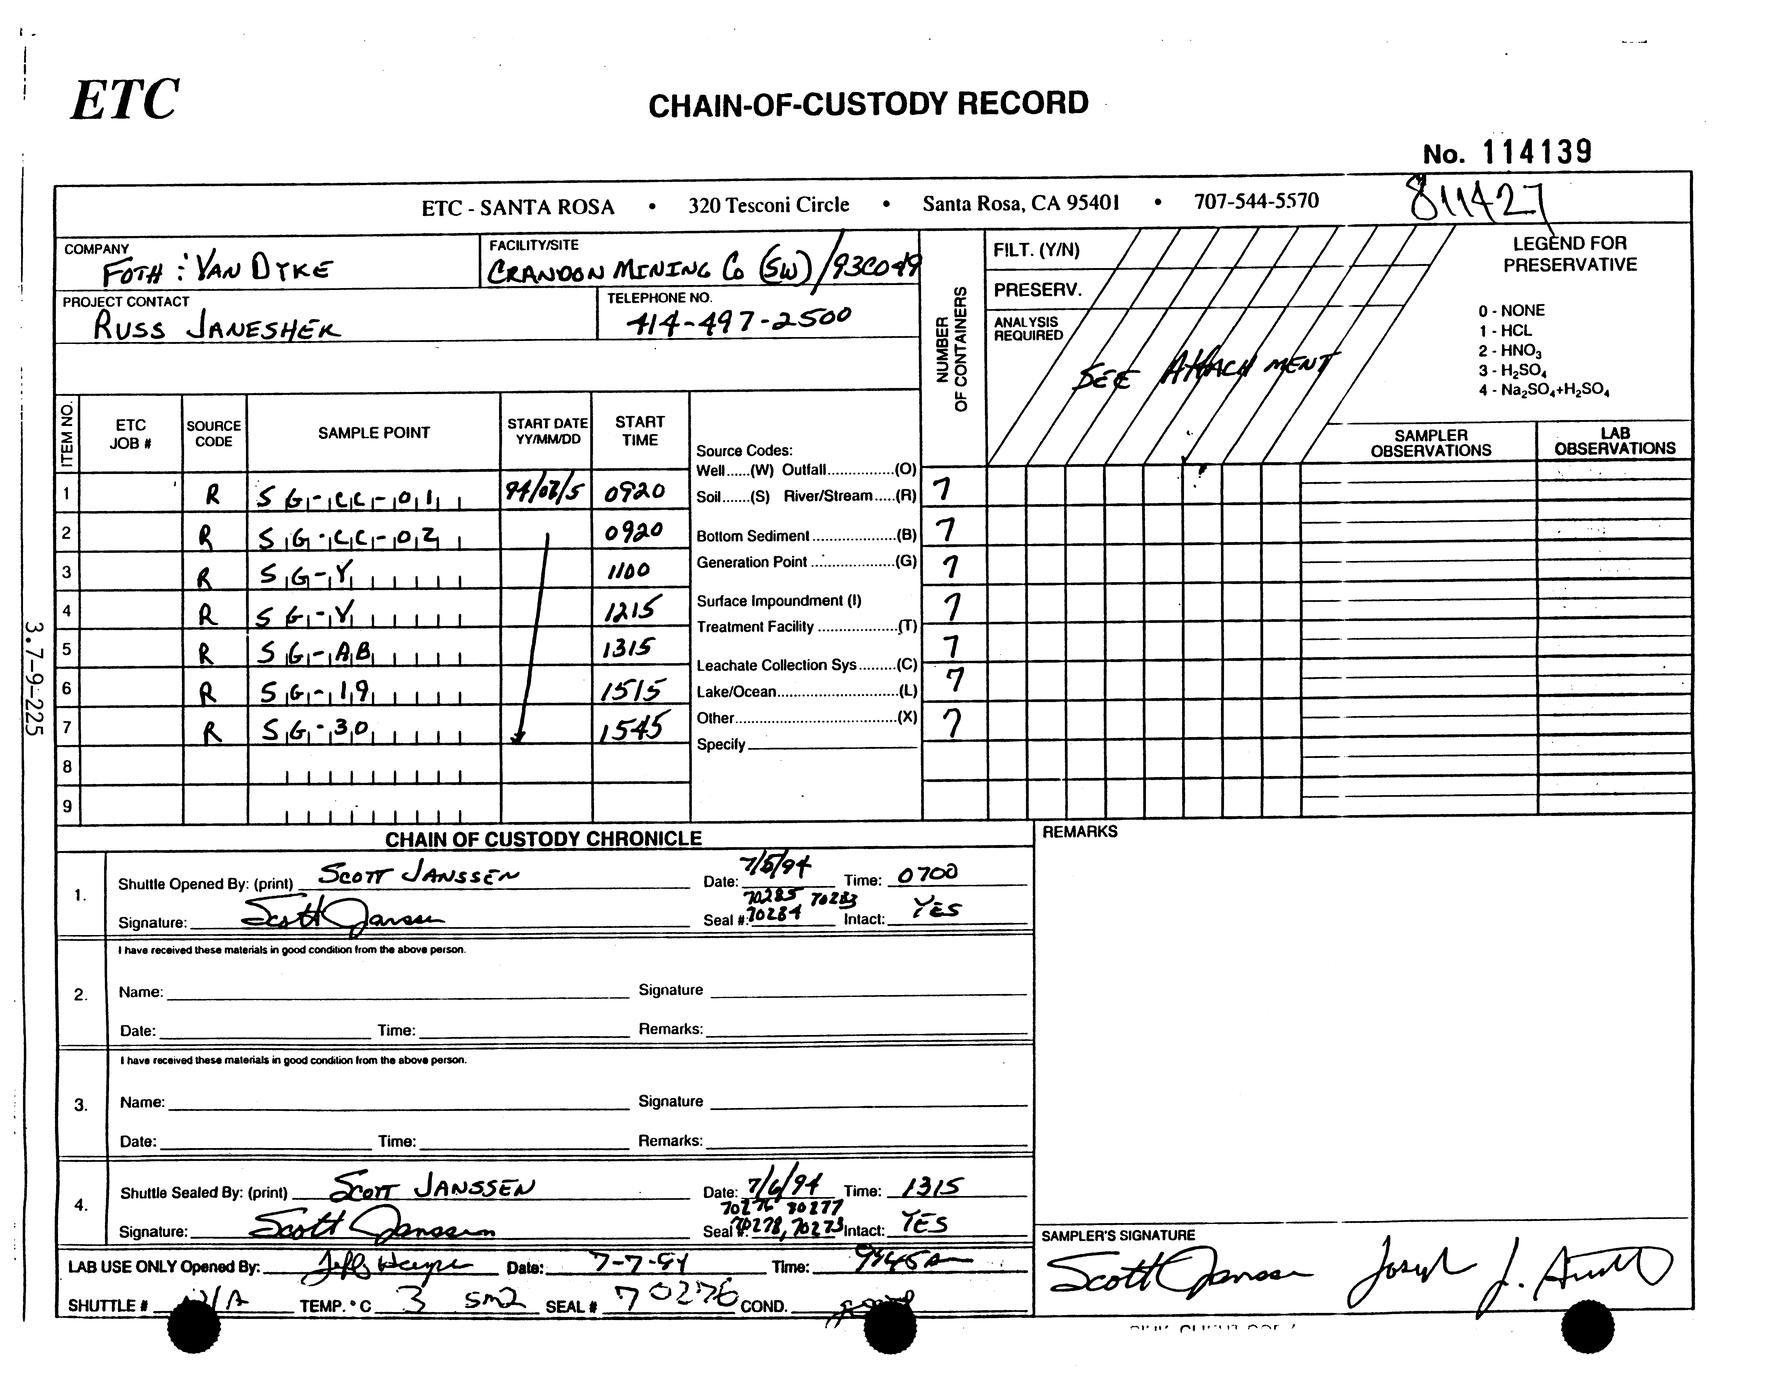 ETC
CHAIN-OF-CUSTODY RECORD
No. 114139
811427
ETC - SANTA ROSA • 320 Tesconi Circle • Santa Rosa, CA 95401 • 707-544-5570
COMPANY
FOTH : VAN DYKE
FACILITY/SITE
CRANDON MINING CO (SW) /93C049
PROJECT CONTACT
RUSS JANESHEK
TELEPHONE NO.
414-497-2500
NUMBER OF CONTAINERS
FILT. (Y/N)
PRESERV.
ANALYSIS REQUIRED
SEE ATTACHMENT
LEGEND FOR PRESERVATIVE
0 - NONE
1 - HCL
2 - HNO3
3 - H2SO4
4 - Na2SO4+H2SO4
ITEM NO. ETC JOB # SOURCE CODE SAMPLE POINT START DATE YY/MM/DD START TIME
SAMPLER OBSERVATIONS LAB OBSERVATIONS
1 R SG-CC-01 94/07/5 0920 7
2 R SG-CC-02 0920 7
3 R SG-Y 1100 7
4 R SG-V 1215 7
5 R SG-AB 1315 7
6 R SG-19 1515 7
7 R SG-30 1545 7
8
9
Source Codes:
Well......(W) Outfall..............(O)
Soil.......(S) River/Stream.....(R)
Bottom Sediment....................(B)
Generation Point ....................(G)
Surface Impoundment (I)
Treatment Facility ...................(T)
Leachate Collection Sys.........(C)
Lake/Ocean............................(L)
Other......................................(X)
Specify
3.7-9-225
CHAIN OF CUSTODY CHRONICLE
REMARKS
1. Shuttle Opened By: (print) SCOTT JANSSEN Date: 7/5/94 Time: 0700
70285 70283
Signature: Scott Janssen Seal #: 70284 Intact: YES
I have received these materials in good condition from the above person.
2. Name: Signature
Date: Time: Remarks:
I have received these materials in good condition from the above person.
3. Name: Signature
Date: Time: Remarks:
4. Shuttle Sealed By: (print) SCOTT JANSSEN Date: 7/6/94 Time: 1315
70276 80277
Signature: Scott Janssen Seal #: 70278, 70273 Intact: YES
SAMPLER'S SIGNATURE
Scott Janssen Joseph J.
LAB USE ONLY Opened By: Date: 7-7-94 Time:
SHUTTLE # N/A TEMP. °C 3 SEAL # 70276 COND. good